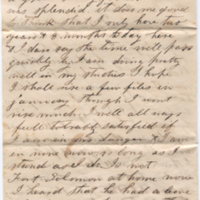 was splendid it does me good
to think that I only have two
years & 3 months to stay here
& I dare say the time will pass
quickly. I am doing pretty
well in my studies I hope
I shall rise a few files in
January though I wont
rise much. I will all ways
feel
satisfied if
I am in
I am
in now
as long as I
stand
Is not
Solomon at home now
I heard that he had a leave